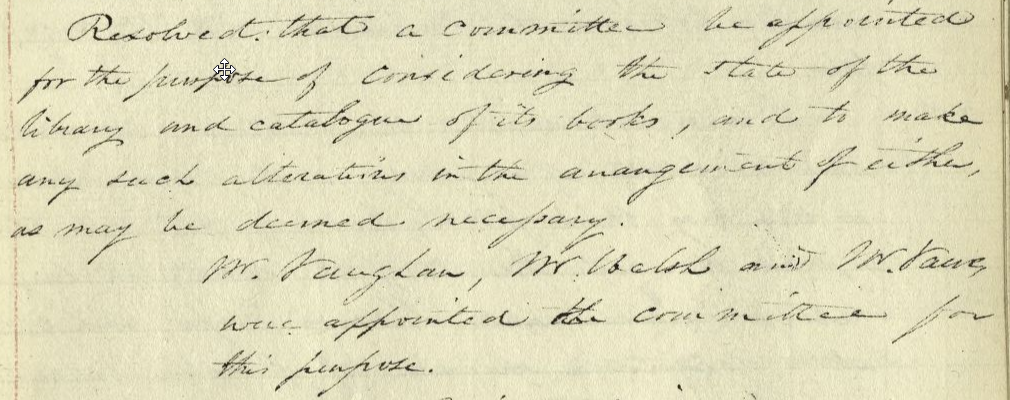 Resolved. that a committee be appointed
for the purpose of considering the state of the
library and catalogue of its books, and to make
any such alterations in the arrangement of either,
as may be deemed necessary.
Mr. Vaughan, Mr. Walsh and Mr. Vaux,
were appointed the committee for
this purpose.